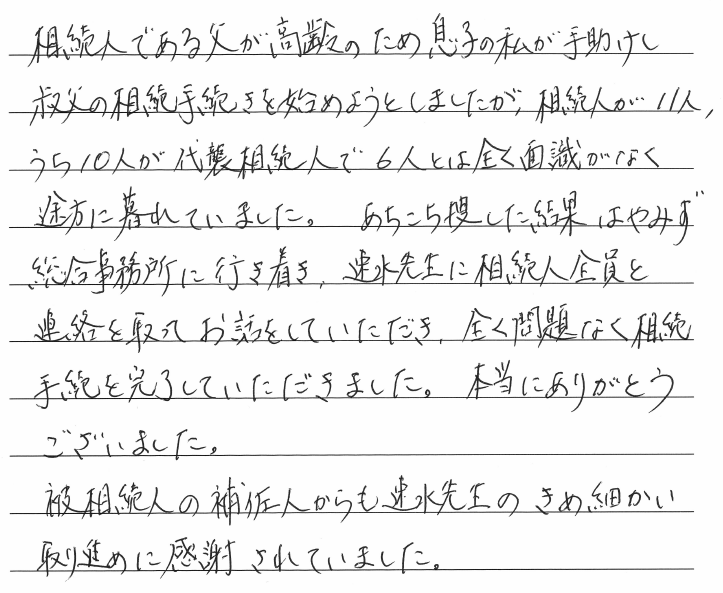 相続人である父が高齢のため息子の私が手助けし
叔父の相続手続きを始めようとしましたが、相続人が11人、
うち10人が代襲相続人で6人とは全く面識がなく
途方に暮れていました。 あちこち捜した結果はやみず
総合事務所に行き着き、速水先生に相続人全員と
連絡を取ってお話をしていただき、全く問題なく相続
手続を完了していただきました。 本当にありがとう
ございました。
被相続人の補佐人からも速水先生のきめ細かい
取り進めに感謝されていました。